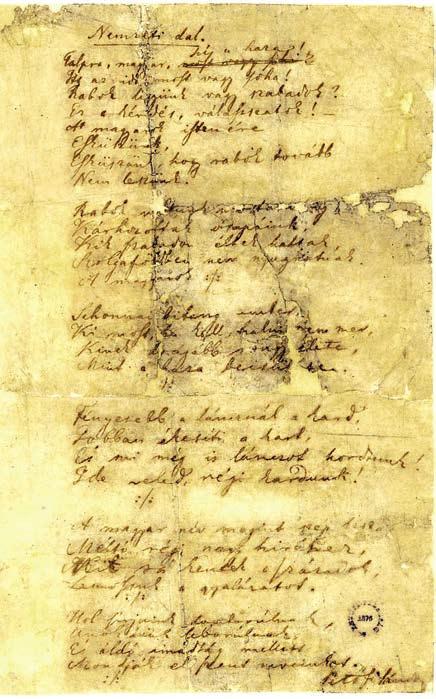 Nemzeti dal.
Talpra, magyar, hí a haza!
Itt az idő, most vagy soha!
Rabok legyünk vagy szabadok?
Ez a kérdés, válasszatok! —
A magyarok istenére
Esküszünk,
Esküszünk, hogy rabok tovább
Nem leszünk.
Rabok voltunk mostanáig,
Kárhozottak ősapáink,
Kik szabadon éltek haltak,
Szolgaföldben nem nyughatnak.
A magyarok :/:
Sehonnai bitang ember,
Ki most, ha kell, halni nem mer,
Kinek drágább rongy élete,
Mint a haza becsülete.
:/:
Fényesebb a láncznál a kard,
Jobban ékesíti a kart,
És mi még is lánczot hordtunk!
Ide veled, régi kardunk!
:/:
A magyar név megint szép lesz,
Méltó régi nagy hiréhez,
Mit rá kentek a századok,
Lemossuk a gyalázatot.
:/:
Hol sírjaink domborulnak,
Unokáink leborulnak,
És áldó imádság mellett
Mondják el szent neveinket.
Petőfi Sándor